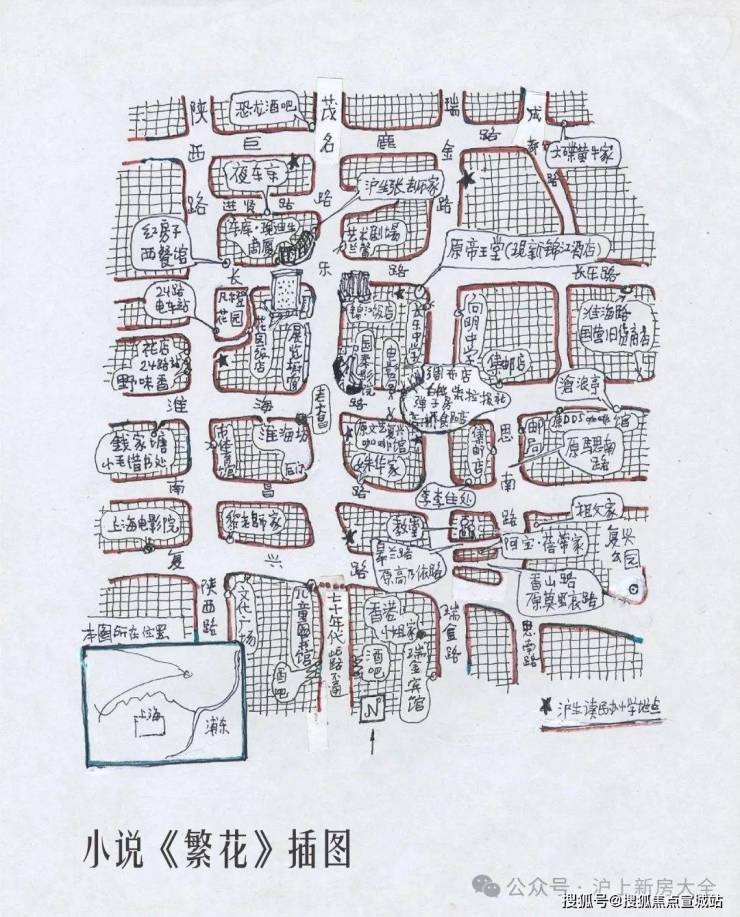 恐龙酒吧
陕
西
路
巨
鹿
路
茂
名
路
瑞
金
路
成
都
路
大碟黄牛家
夜东京
进贤路
沪生张老师家
红房子
西餐馆
车库·现迪生
商厦
艺术剧场
兰馨
原帝王堂(现新锦江酒店)
长
乐
路
长乐路
24路
电车站
凡登
花园
花园饭店
展览橱窗
锦江饭店
国泰电影院
向明中学
集邮店
淮海路
国营旧货商店
花店
24路站
野味香
淮
海
路
老大昌
弹子房
沧浪亭
钱家塘
小毛借书处
淮海坊
后门
原文艺复兴
咖啡馆
姝华家
集邮店
思
南
路
邮局
原DDS咖啡馆
原馬思南
路
南
昌
路
李李住处
上海电影院
黎老師家
教堂
皋兰路
原高乃依路
祖父家
阿宝·蓓蒂家
复兴
公园
香山路
原莫里哀路
复
兴
路
陕西路
文化广场
儿童图书馆
酒吧
七十年代此路不通
香港
小姐家
酒吧
瑞金宾馆
瑞金路
思南路
本图所在位置
上海
浦东
N
★沪生读民办小学地点
小说《繁花》插图
公众号·沪上新房大全
搜狐号@搜狐焦点宣城站